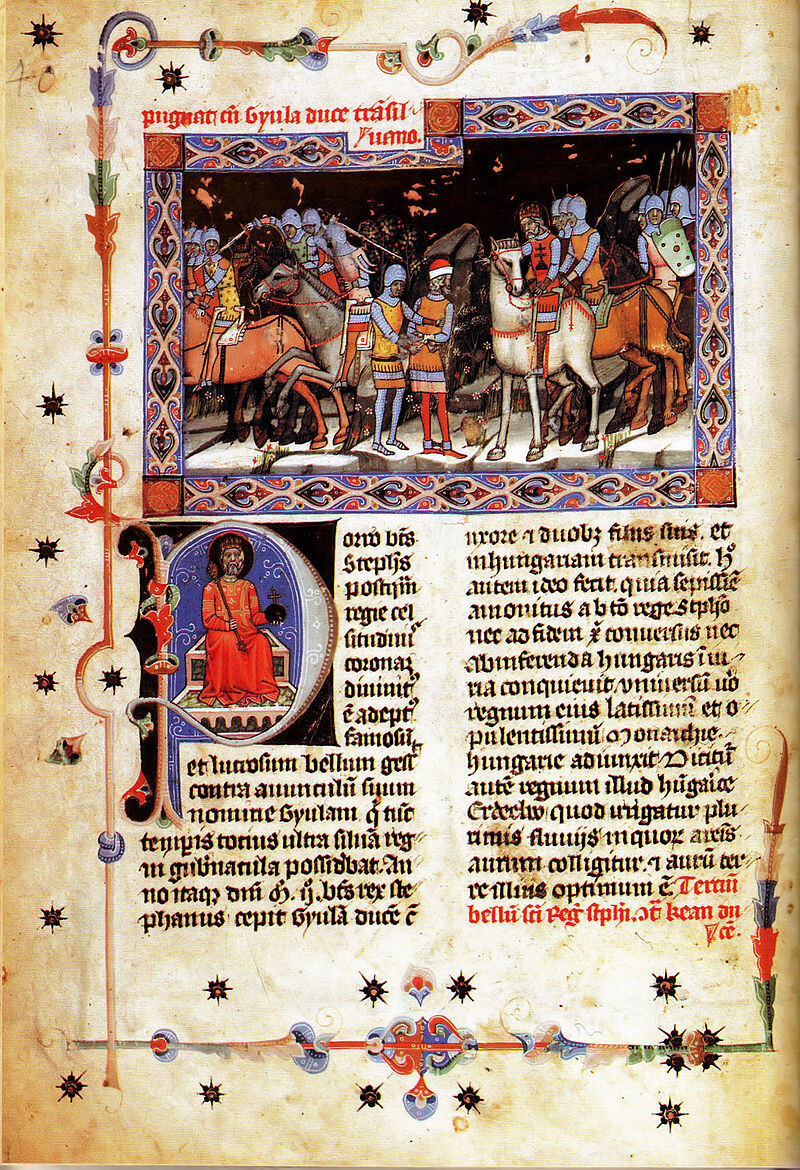 40
pugnat cū Gyula duce trāsil
uano.
orro bt̄s
Stephs̄
postqm̄
regie cel
situdinis
coronaꝫ
diuinit᷒
ē adept᷒
famosū
et lucrosum bellum gess̄
contra auunculū suum
nomine Gyulam q̄ tūc
temp̄is totius ultra siluā reg
ni gub̄nacula possidebat. An
no itaqꝫ dn̄i M. ij. bt̄s rex ste
phanus cepit Gyulā ducē c̄
uxore ⁊ duobꝫ filijs suis. et
in hungariam transmisit. H̊
autem ideo fecit. quia sepissīe
amonitus a bt̄o rege Stph̄o
nec ad fidem x̄ conuersus nec
ab inferenda hungaris iniu
ria conquieuit. uniuersū uo̊
regnum eius latissimū et o
pulentissimū Monarchie
hungarie adiunxit Dicitur̄
autē regnum illud hūgaice
Erdeelw quod irrigatur plu
rimis fluuijs in quoꝝ aren̄s
aurum colligitur. ⁊ aurū ter
re illius optimum ē. Tertiū
bellū sc̄i Reg᷒ stph̄i. ꝯt̄ kean du
cē.